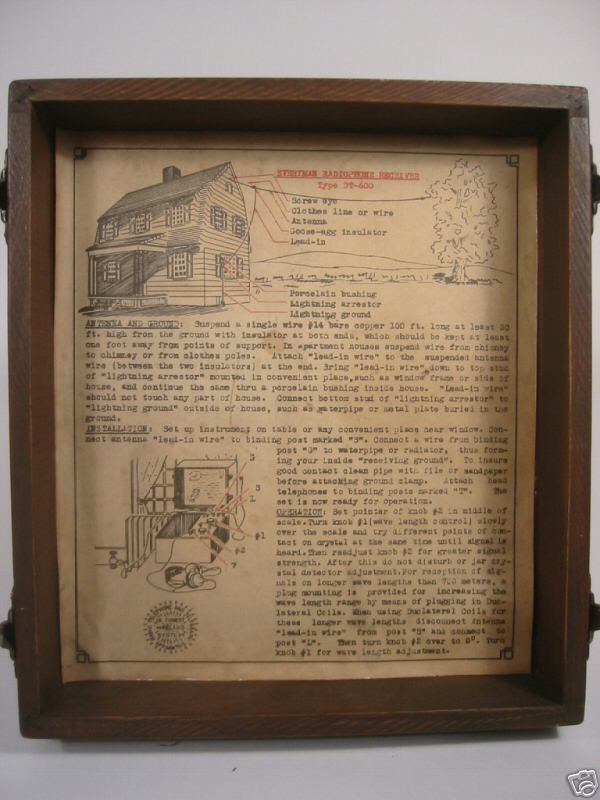 EVERYMAN RADIOPHONE RECEIVER
Type DT-600
Screw eye
Clothes line or wire
Antenna
Goose-egg insulator
Lead-in
Porcelain bushing
Lightning arrestor
Lightning ground
ANTENNA AND GROUND: Suspend a single wire #14 bare copper 100 ft. long at least 30
ft. high from the ground with insulator at both ends, which should be kept at least
one foot away from points of support. In apartment houses suspend wire from chimney
to chimney or from clothes poles. Attach "lead-in wire" to the suspended antenna
wire (between the two insulators) at the end. Bring "lead-in wire" down to top stud
of "lightning arrestor" mounted in convenient place, such as window frame or side of
house, and continue the same thru a porcelain bushing inside house. "Lead-in wire"
should not touch any part of house. Connect bottom stud of "lightning arrestor" to
"lightning ground" outside of house, such as waterpipe or metal plate buried in the
ground.
INSTALLATION: Set up instrument on table or any convenient place near window. Con-
nect antenna "lead-in wire" to binding post marked "S". Connect a wire from binding
post "G" to waterpipe or radiator, thus form-
ing your inside "receiving ground". To insure
good contact clean pipe with file or sandpaper
before attaching ground clamp. Attach head
telephones to binding posts marked "T". The
set is now ready for operation.
OPERATION: Set pointer of knob #2 in middle of
scale. Turn knob #1 (wave length control) slowly
over the scale and try different points of con-
tact on crystal at the same time until signal is
heard. Then readjust knob #2 for greater signal
strength. After this do not disturb or jar cry-
stal detector adjustment. For reception of sig-
nals on longer wave lengths than 700 meters, a
plug mounting is provided for increasing the
wave length range by means of plugging in Duo-
lateral Coils. When using Duolateral Coils for
these longer wave lengths disconnect Antenna
"lead-in wire" from post "S" and connect to
post "L". Then turn knob #2 over to 0°. Turn
knob #1 for wave length adjustment.
S
L
#1
#2
DE FOREST
SYSTEM